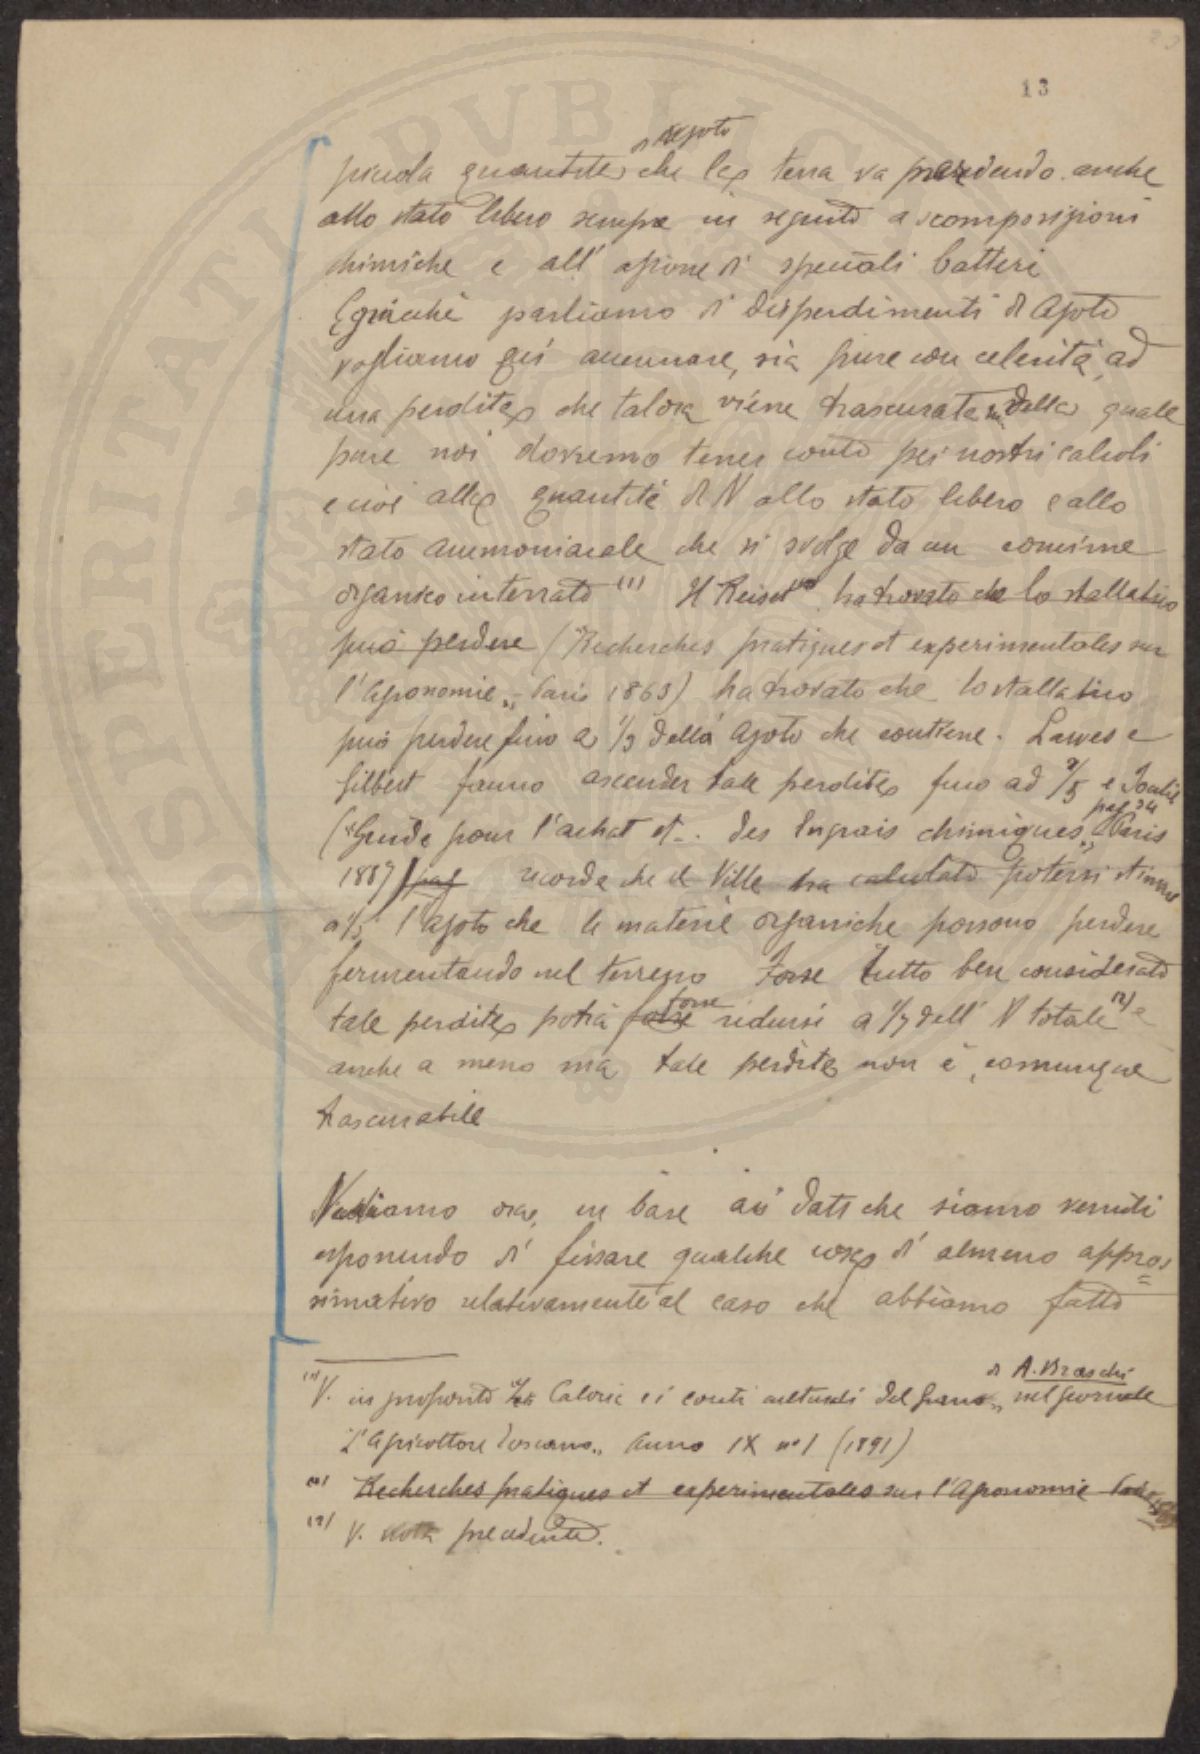 13
di azoto
piccola quantità che la terra va perdendo anche
allo stato libero sempre in seguito a scomposizioni
chimiche e all' azione di speciali batteri
E giacchè parliamo di disperdimenti di azoto
vogliamo quì accennare, sia pure con celerità, ad
una perdita che talora viene trascurata e della quale
pure noi dovremo tener conto pei nostri calcoli
e cioè alla quantità di N allo stato libero e allo
stato ammoniacale che si svolge da un concime
organico interrato (1) Il Reiset ha trovato che lo stallatico
può perdere ("Recherches pratiques et experimentales sur
l'Agronomie" Paris 1863) ha trovato che lo stallatico
può perdere fino a 1/3 dell'azoto che contiene. Lawes e
Gilbert fanno ascender tale perdita fino ad 2/5 e Joulie
("Guide pour l'achat et.. des Engrais chimiques" Paris
pag 34
1887) pag ricorda che il Ville ha calcolato potersi stimare
a 1/3 l'azoto che le materie organiche possono perdere
fermentando nel terreno Forse tutto ben considerato
tale perdita potrà forse forse ridursi a 1/7 dell' N totale (2) e
anche a meno ma tale perdita non è, comunque
trascurabile
Vediamo ora, in base ai dati che siamo venuti
esponendo di fissare qualche cosa di almeno appros
simativo relativamente al caso che abbiamo fatto
di A. Braschi
(1) V. in proposito Le Calorie e i conti colturali del grano" nel giornale
L'Agricoltore Toscano" Anno IX n° 1 (1891)
(2) Recherches pratiques et experimentales sur l'Agronomie Paris 1863
(2) V. nota precedente.